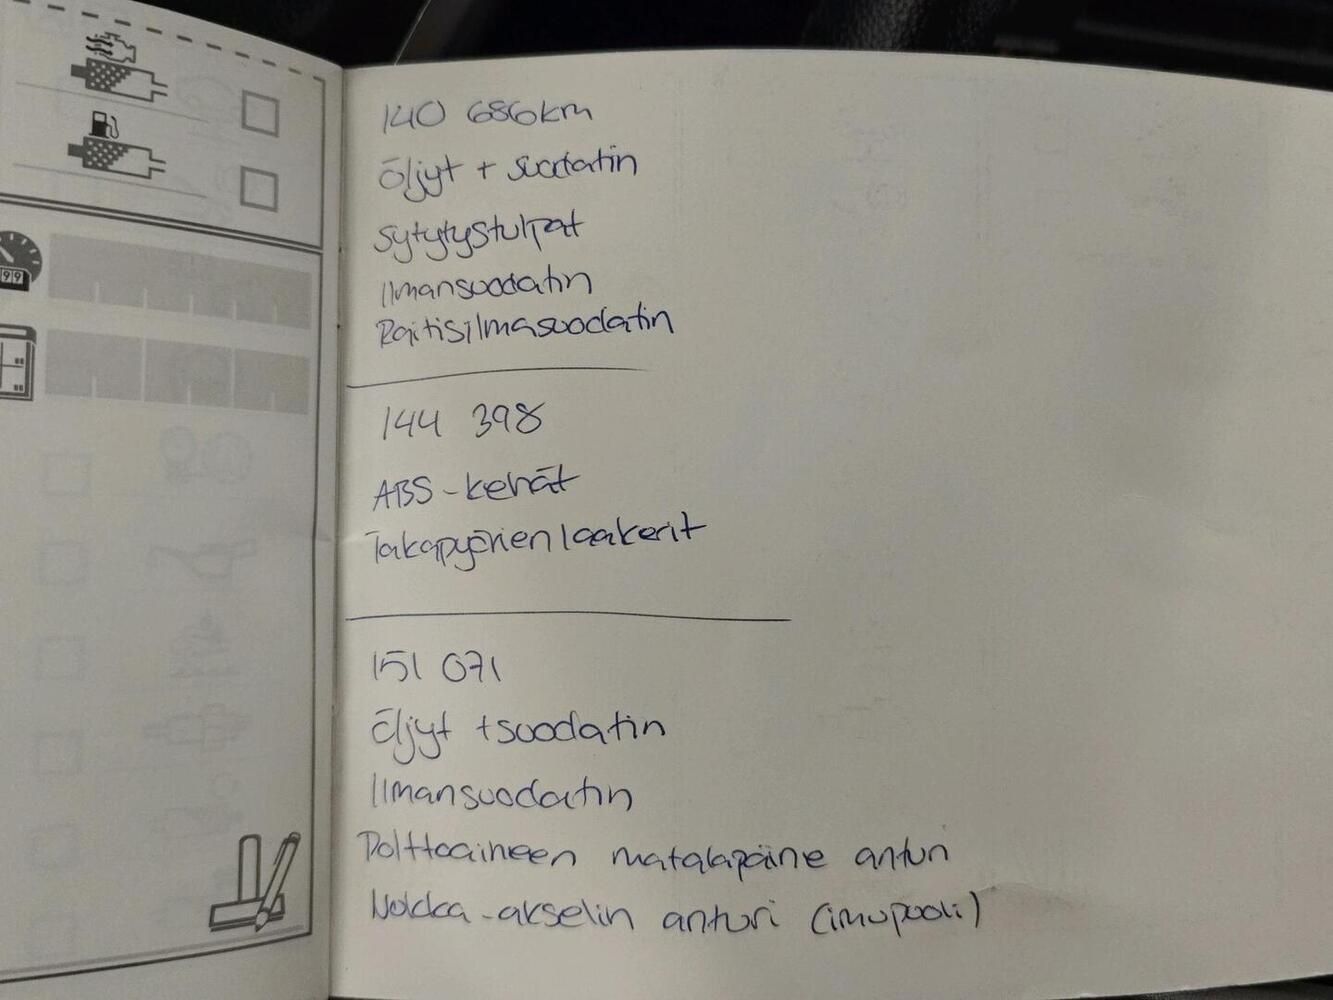 140 686km
Öljyt + suodatin
Sytytystulpat
Ilmansuodatin
Raitisilmasuodatin
144 398
ABS-kehät
Takapyörien laakerit
151 071
Öljyt +suodatin
Ilmansuodatin
Polttoaineen matalapaine anturi
Nokka-akselin anturi (imupuoli)
99